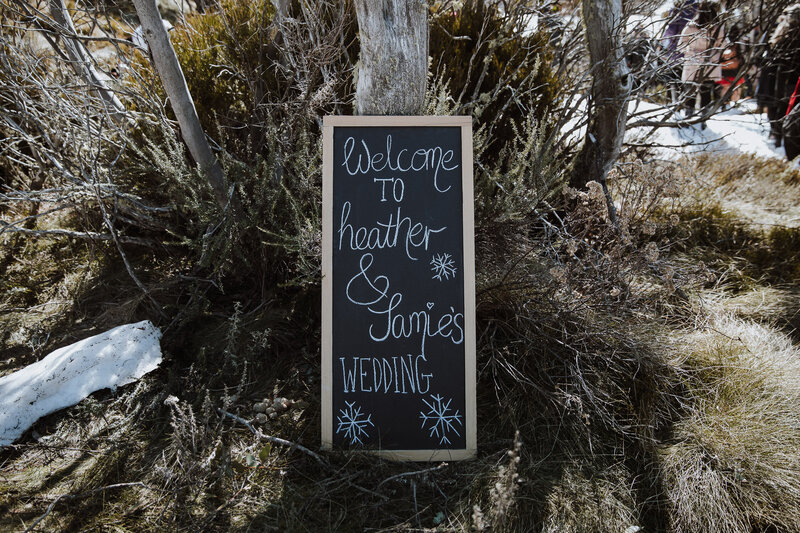 Welcome
TO
heather
&
Jamie's
WEDDING